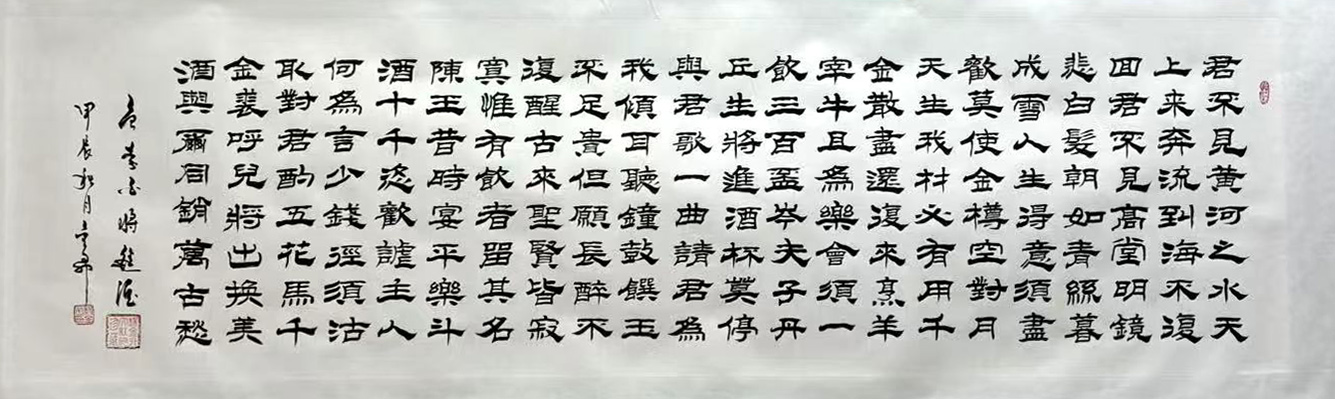 君不見黃河之水天
上来奔流到海不復
回君不見高堂明鏡
悲白髮朝如青絲暮
成雪人生得意須盡
歡莫使金樽空對月
天生我材必有用千
金散盡還復来烹羊
宰牛且為樂會須一
飲三百盃岑夫子丹
丘生將進酒杯莫停
與君歌一曲請君為
我傾耳聽鐘鼓饌玉
不足貴但願長醉不
復醒古来聖賢皆寂
寞惟有飲者留其名
陳王昔時宴平樂斗
酒十千恣歡謔主人
何為言少錢徑須沽
取對君酌五花馬千
金裘呼兒將出換美
酒與爾同銷萬古愁
李白將進酒
甲辰秋月